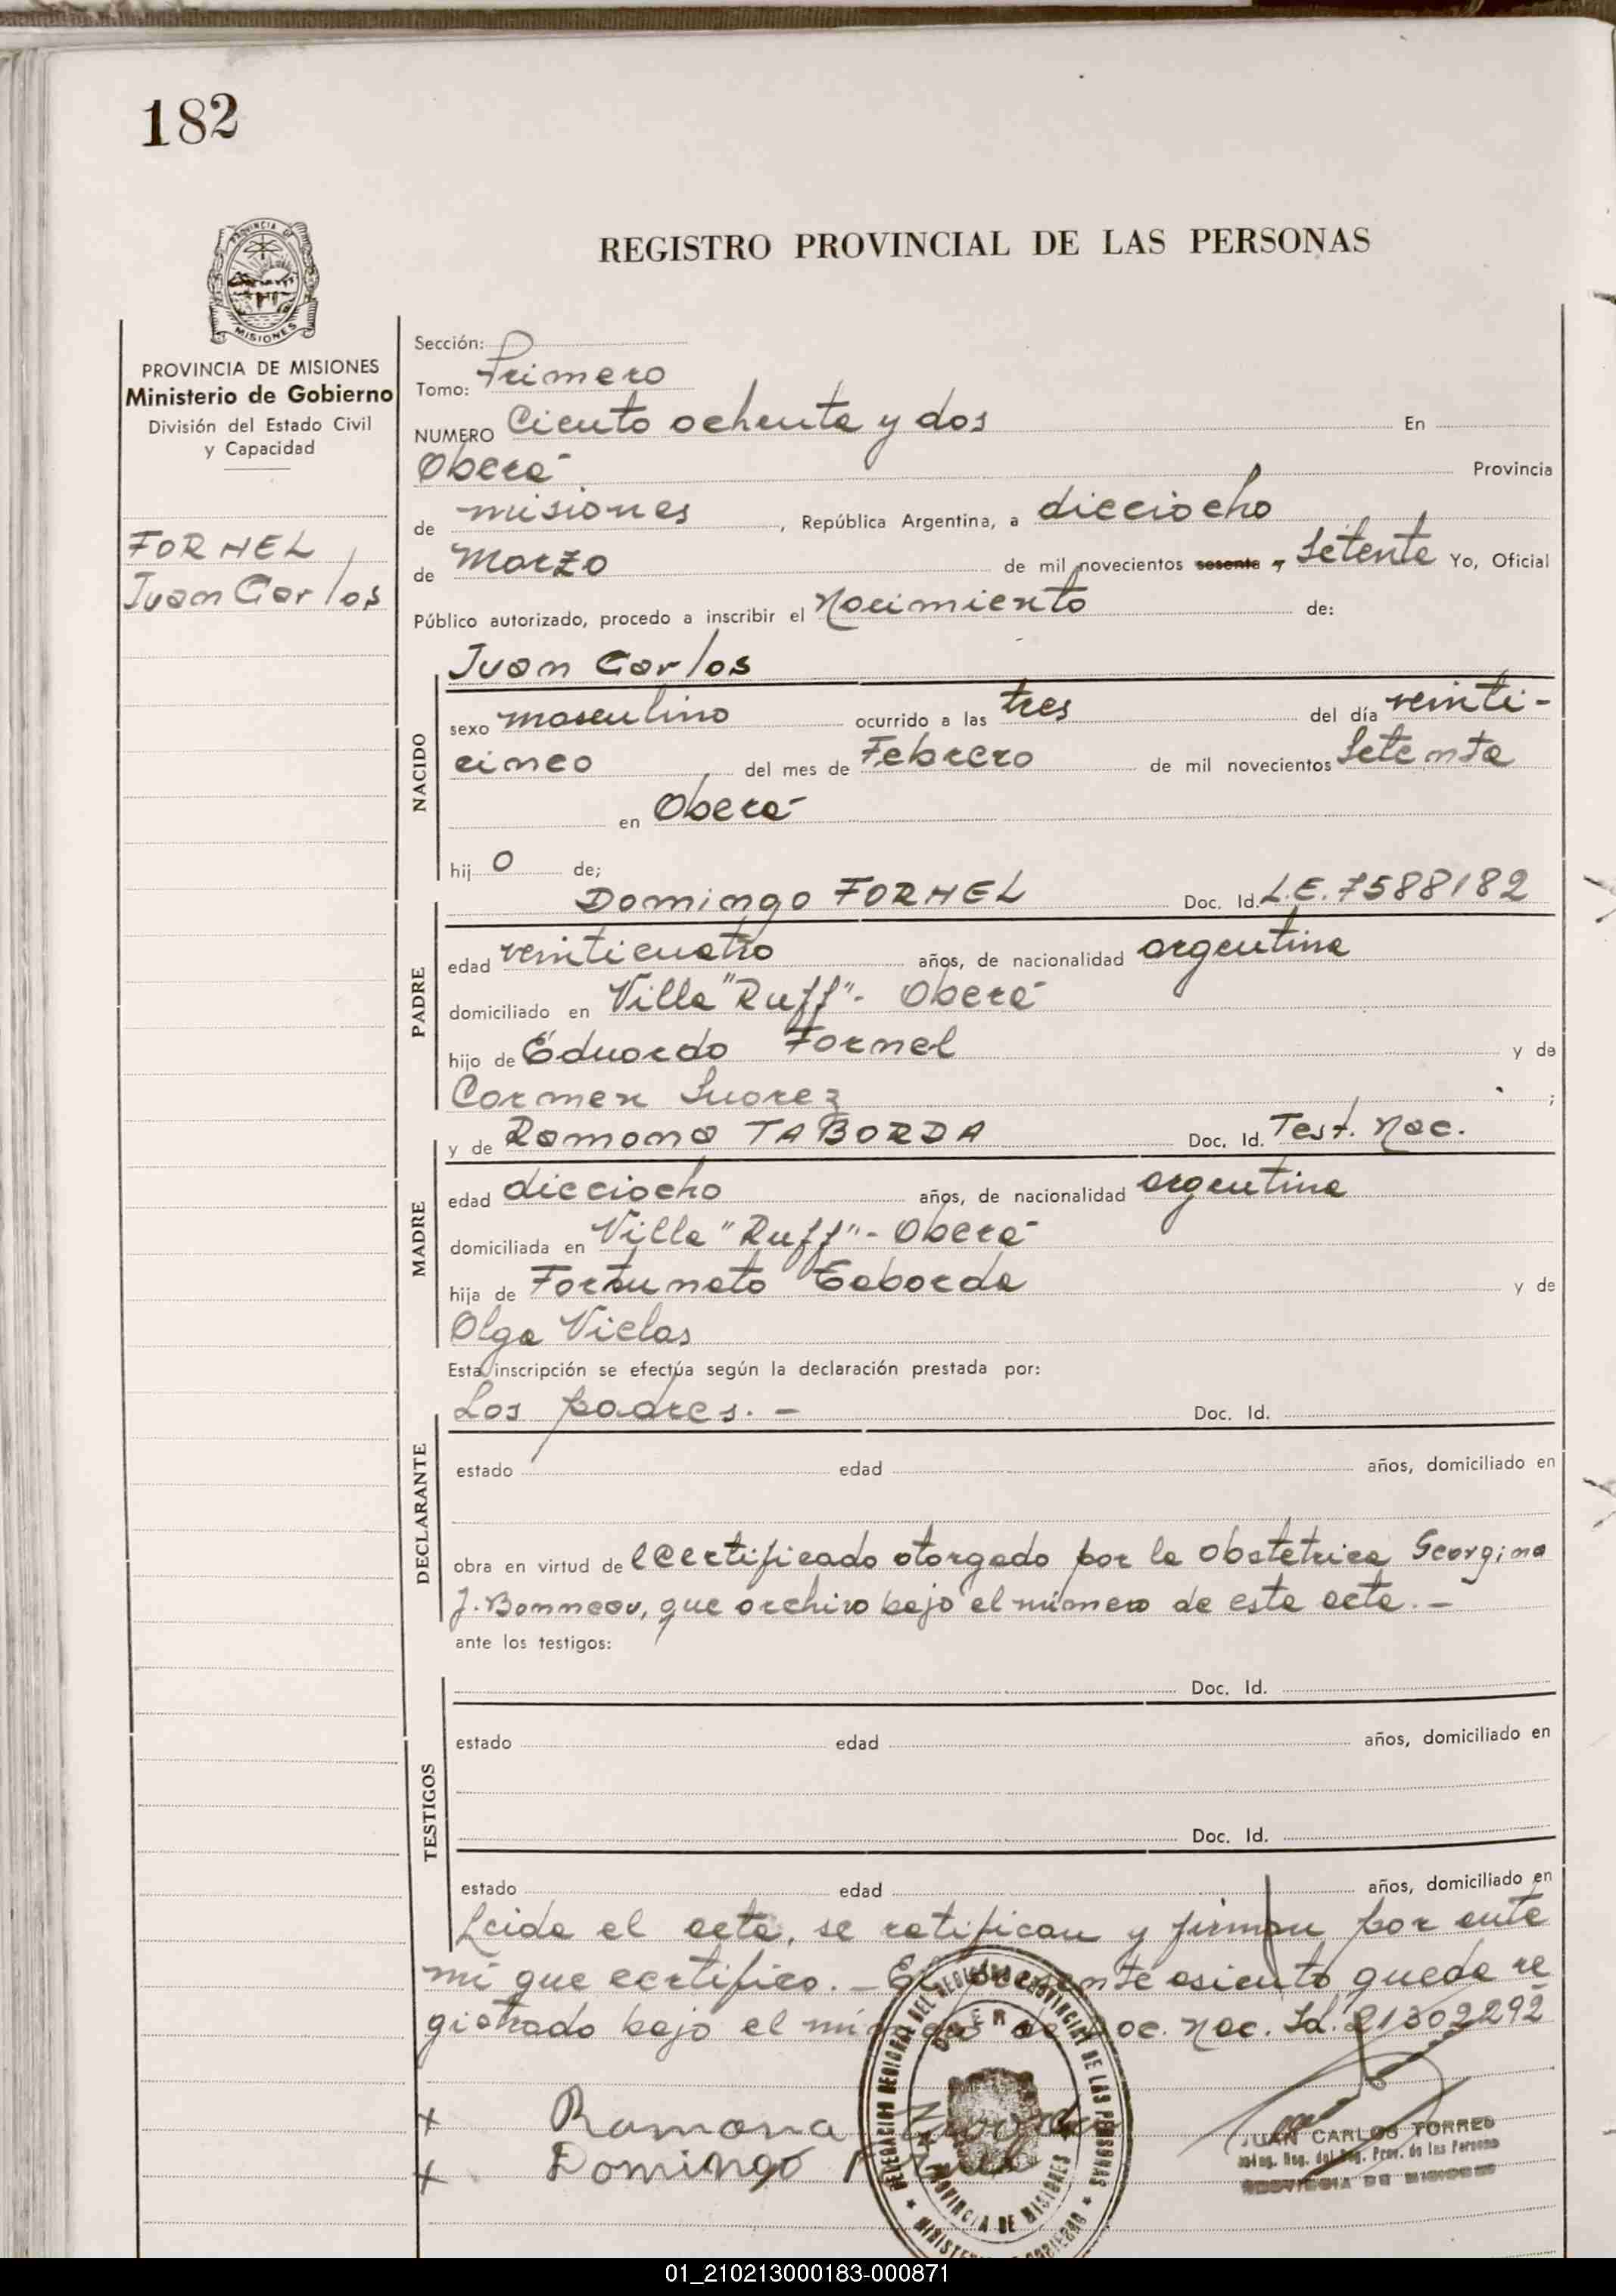 182
PROVINCIA DE
MISIONES
REGISTRO PROVINCIAL DE LAS PERSONAS
PROVINCIA DE MISIONES
Ministerio de Gobierno
División del Estado Civil
y Capacidad
FORNEL
Juan Carlos
Sección:
Tomo: Primero
NUMERO Ciento ochenta y dos En
Oberá Provincia
de misiones, República Argentina, a dieciocho
de Marzo de mil novecientos sesenta y Setenta Yo, Oficial
Público autorizado, procedo a inscribir el Nacimiento de:
Juan Carlos
NACIDO
sexo masculino ocurrido a las tres del día veinti-
cinco del mes de Febrero de mil novecientos Setenta
en Oberá
hijo de;
Domingo FORNEL Doc. Id. L.E. 7588182
PADRE
edad veinticuatro años, de nacionalidad argentina
domiciliado en Villa "Ruff"- Oberá
hijo de Eduardo Fornel y de
Carmen Suarez ;
y de Ramona TABORDA Doc. Id. Test. Nac.
MADRE
edad dieciocho años, de nacionalidad argentina
domiciliada en Villa "Ruff"- Oberá
hija de Fortunato Taborda y de
Olga Vielas
Esta inscripción se efectúa según la declaración prestada por:
Los padres. - Doc. Id.
DECLARANTE
estado edad años, domiciliado en
obra en virtud del certificado otorgado por la obstetrica Georgina
J. , que archivo bajo el número de esta acta. -
ante los testigos:
Doc. Id.
TESTIGOS
estado edad años, domiciliado en
Doc. Id.
estado edad años, domiciliado en
Leida el acta, se ratifican y firman por ante
mi que certifico. - El presente asiento queda re
gistrado bajo el número de Doc. Nac. Id. 21302292
+ Ramona Taborda
+ Domingo Fornel
OBERA
PROVINCIA DE MISIONES
JUAN CARLOS TORRES
Prov. de las Persona
PROVINCIA DE MISIONES
01_210213000183-000871